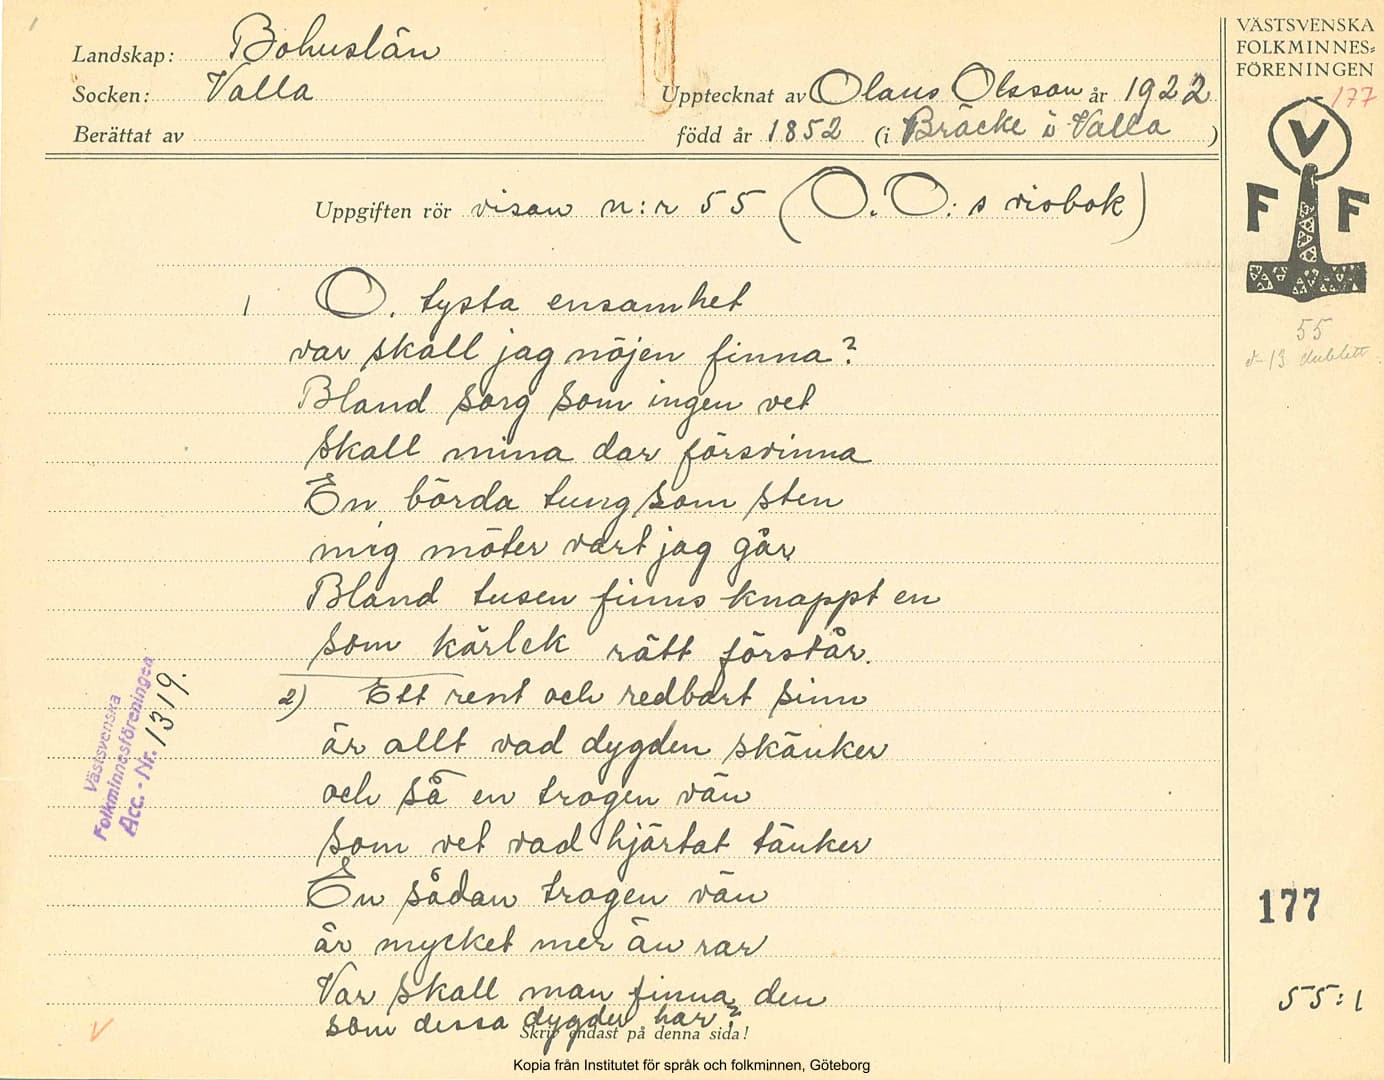 Landskap: Bohuslän
Socken: Valla
Berättat av
Upptecknat av Olaus Olsson år 1922
född år 1852 (i Bräcke i Valla )
VÄSTSVENSKA
FOLKMINNES=
FÖRENINGEN
177
V
F F
Uppgiften rör visan n:r 55 (O. O:s visbok)
55
dublett
1 O, tysta ensamhet
var skall jag nöjen finna?
Bland sorg som ingen vet
skall mina dar försvinna
En börda tung som sten
mig möter vart jag går,
Bland tusen finns knappt en
som kärlek rätt förstår.
2) Ett rent och redbart sinn
är allt vad dygden skänker
och så en trogen vän
som vet vad hjärtat tänker
En sådan trogen vän
är mycket mer än rar
Var skall man finna den
som dessa dygder har?
Västsvenska
Folkminnesföreningen
Acc. - Nr. 1319.
177
55:1
Skriv endast på denna sida!
Kopia från Institutet för språk och folkminnen, Göteborg